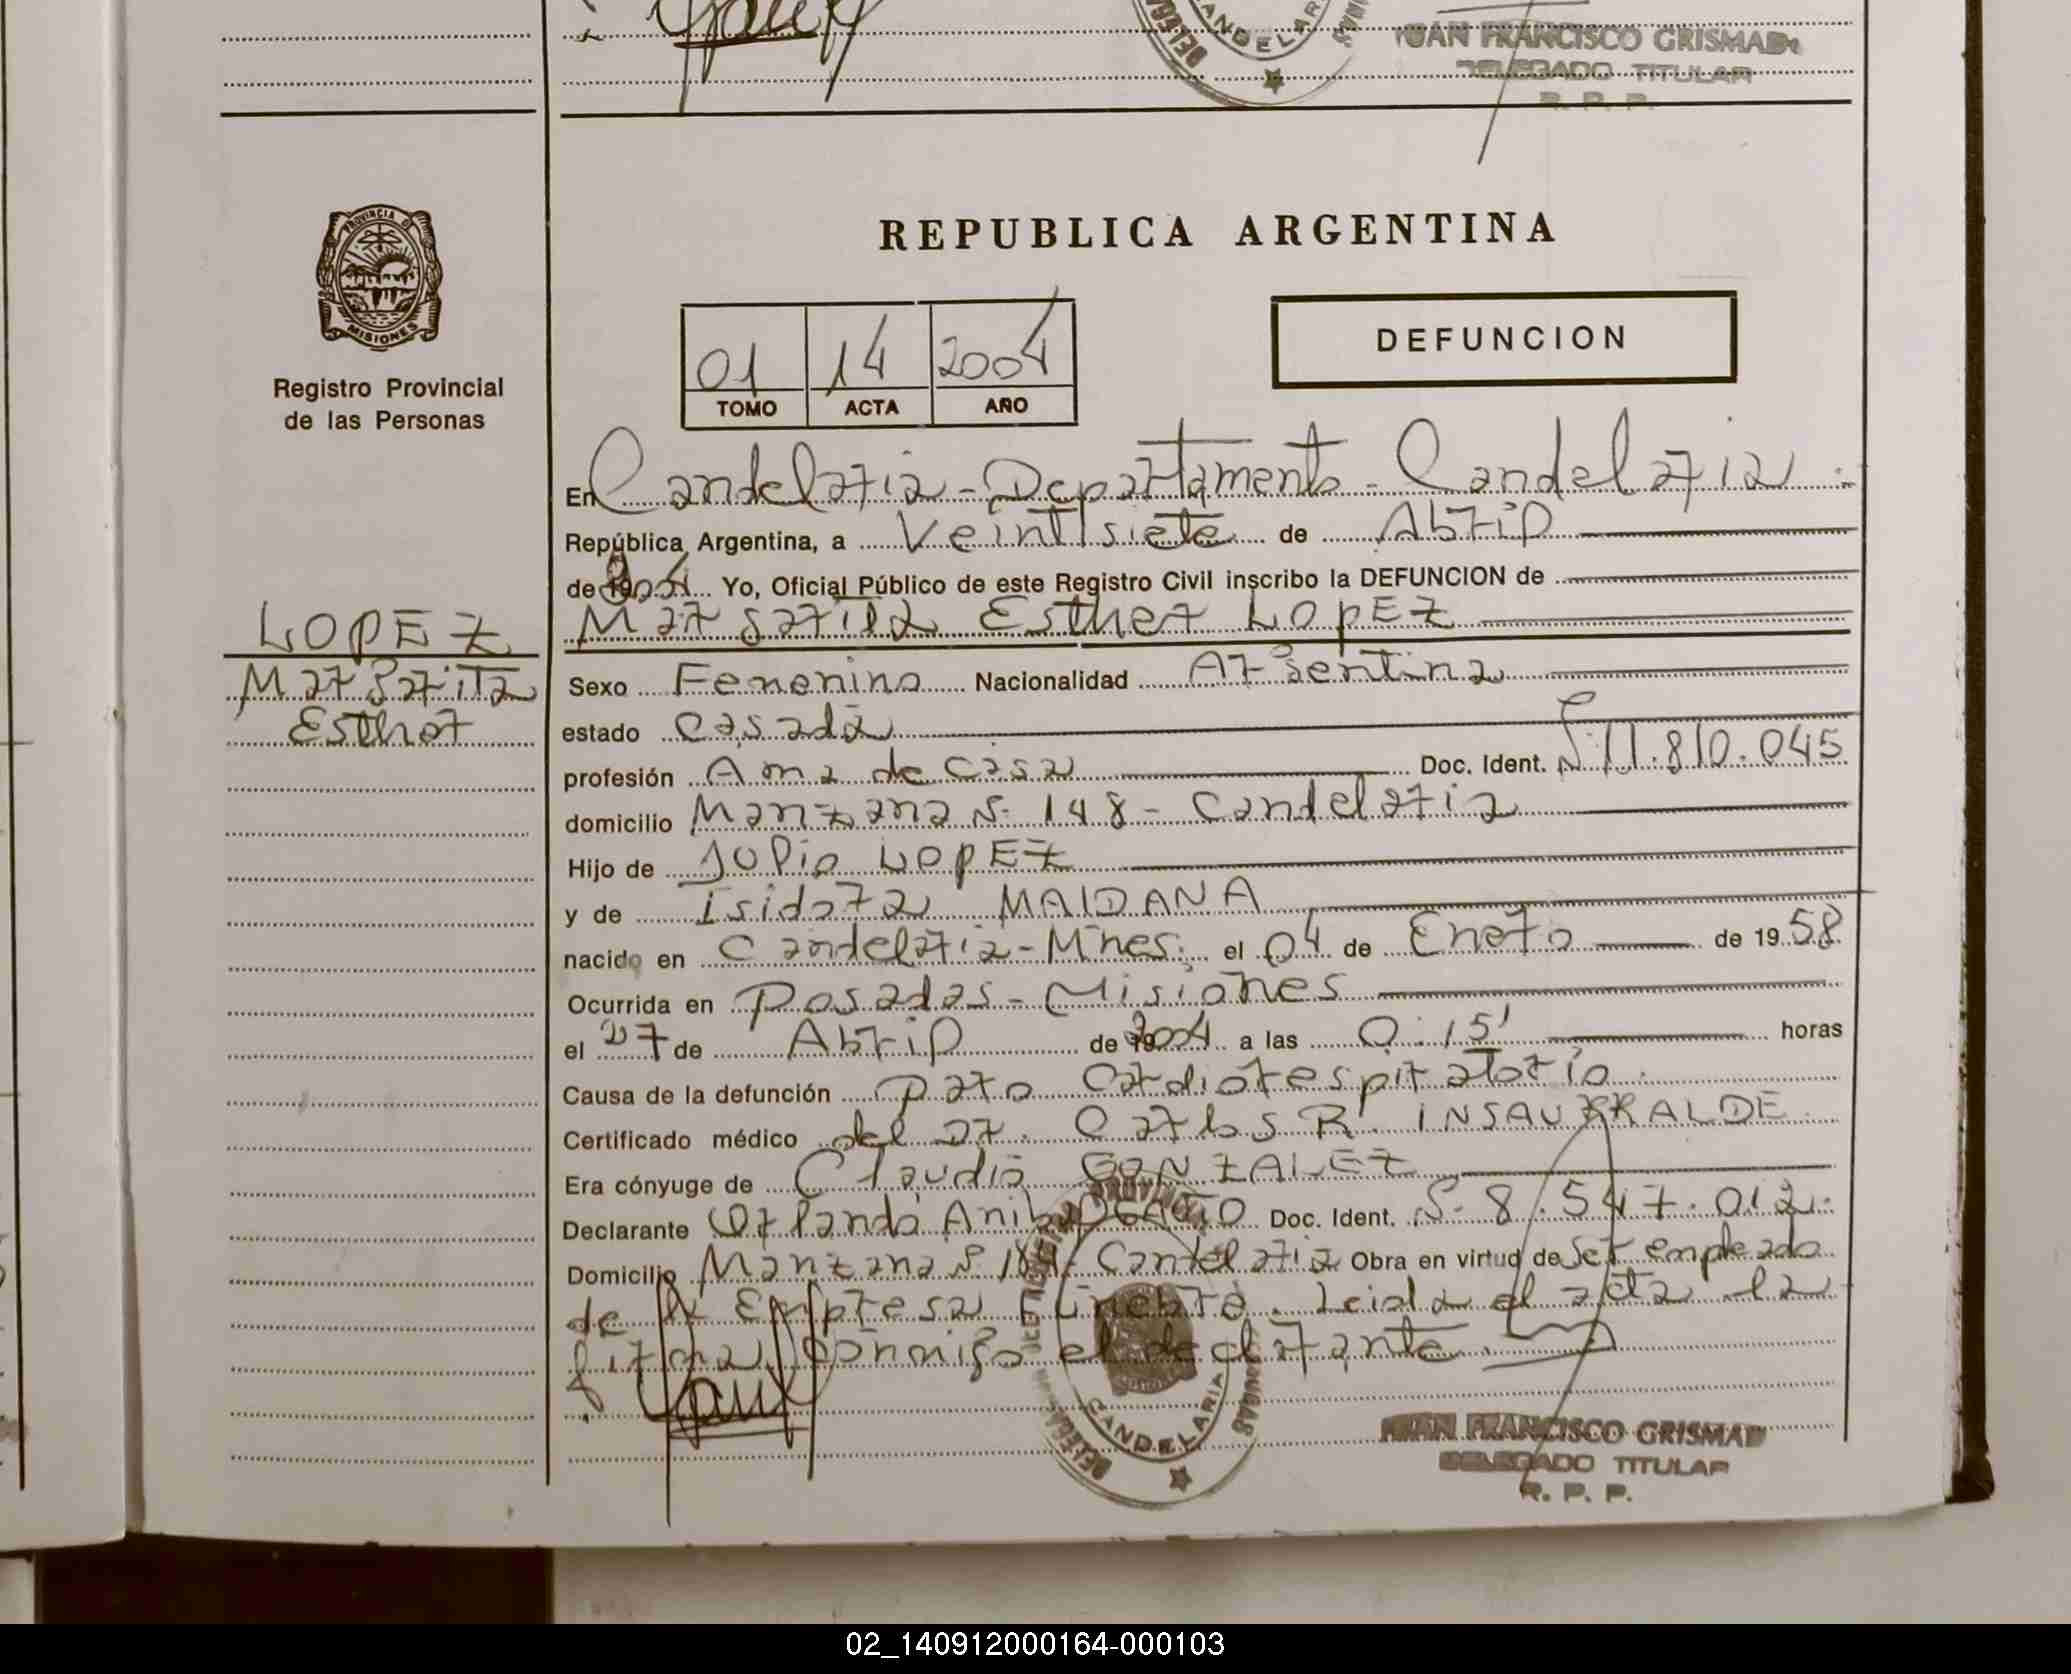 CANDELARIA
JUAN FRANCISCO GRISMAD
DELEGADO TITULAR
R. P. P.
PROVINCIA DE
MISIONES
Registro Provincial
de las Personas
REPUBLICA ARGENTINA
01 14 2004
TOMO ACTA AÑO
DEFUNCION
En Candelaria - Departamento - Candelaria
República Argentina, a Veintisiete de Abril
de 2004 Yo, Oficial Público de este Registro Civil inscribo la DEFUNCION de
LOPEZ
Margarita Esther LOPEZ
Margarita
Esther
Sexo Femenino Nacionalidad Argentina
estado Casada
profesión Ama de casa Doc. Ident. Nº 11.810.045
domicilio Manzana Nº 148 - Candelaria
Hijo de Julio LOPEZ
y de Isidora MAIDANA
nacido en Candelaria - Mnes. el 04 de Enero de 1958
Ocurrida en Posadas - Misiones
el 27 de Abril de 2004 a las 0:15' horas
Causa de la defunción paro Cardiorespiratorio
Certificado médico del Dr. Carlos R. INSAURRALDE
Era cónyuge de Claudio GONZALEZ
Declarante Orlando Anibal Doc. Ident. Nº 8.547.012
Domicilio Manzana Nº Candelaria Obra en virtud de ser empleado
de la Empresa Funebre. Leida el acta la
firma conmigo el declarante.
CANDELARIA
JUAN FRANCISCO GRISMAD
DELEGADO TITULAR
R. P. P.
02_140912000164-000103